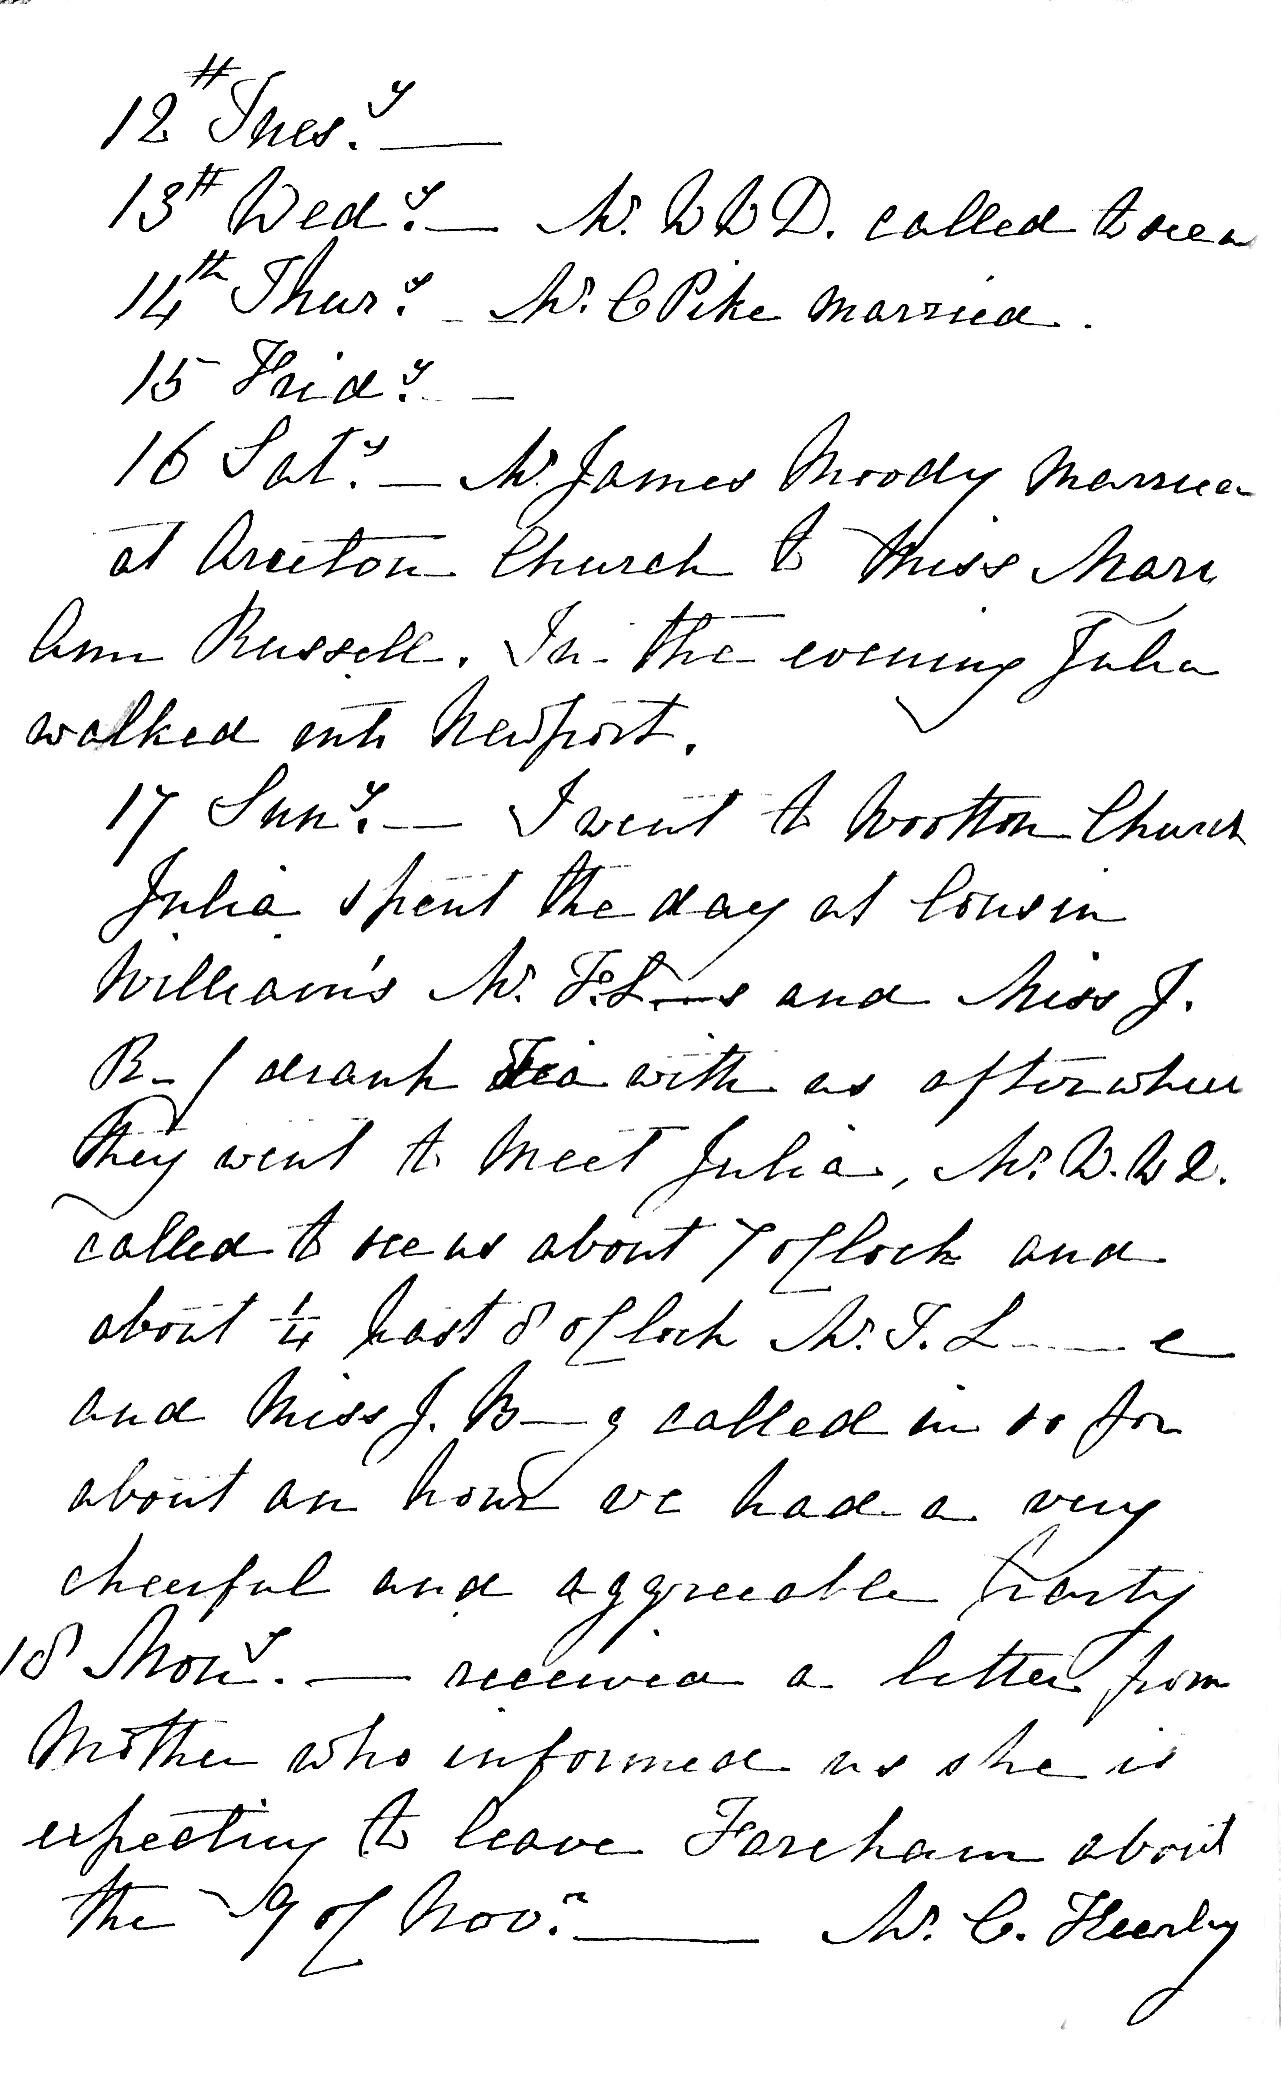 12th Tuesy. —
13th Wedy. — Mr. W W D. called to see us
14th Thury. — Mr. C Pike married.
15 Fridy. —
16 Saty. — Mr. James Moody married
at Arreton Church to Miss Mary
Ann Russell. In the evening Julia
walked into Newport.
17 Suny. — I went to Wootton Church
Julia spent the day at Cousin
William's Mr. F. L---s and Miss J.
B-g drank Tea with us after when
they went to meet Julia, Mr. W. W D.
called to see us about 7 o'Clock and
about 1/4 past 8 o'Clock Mr. F. L----e
and Miss J. B—g called in so for
about an hour we had a very
cheerful and aggreeable party
18 Mony. — received a letter from
Mother who informed us she is
expecting to leave Fareham about
the 9 of Novr. — Mr. C.